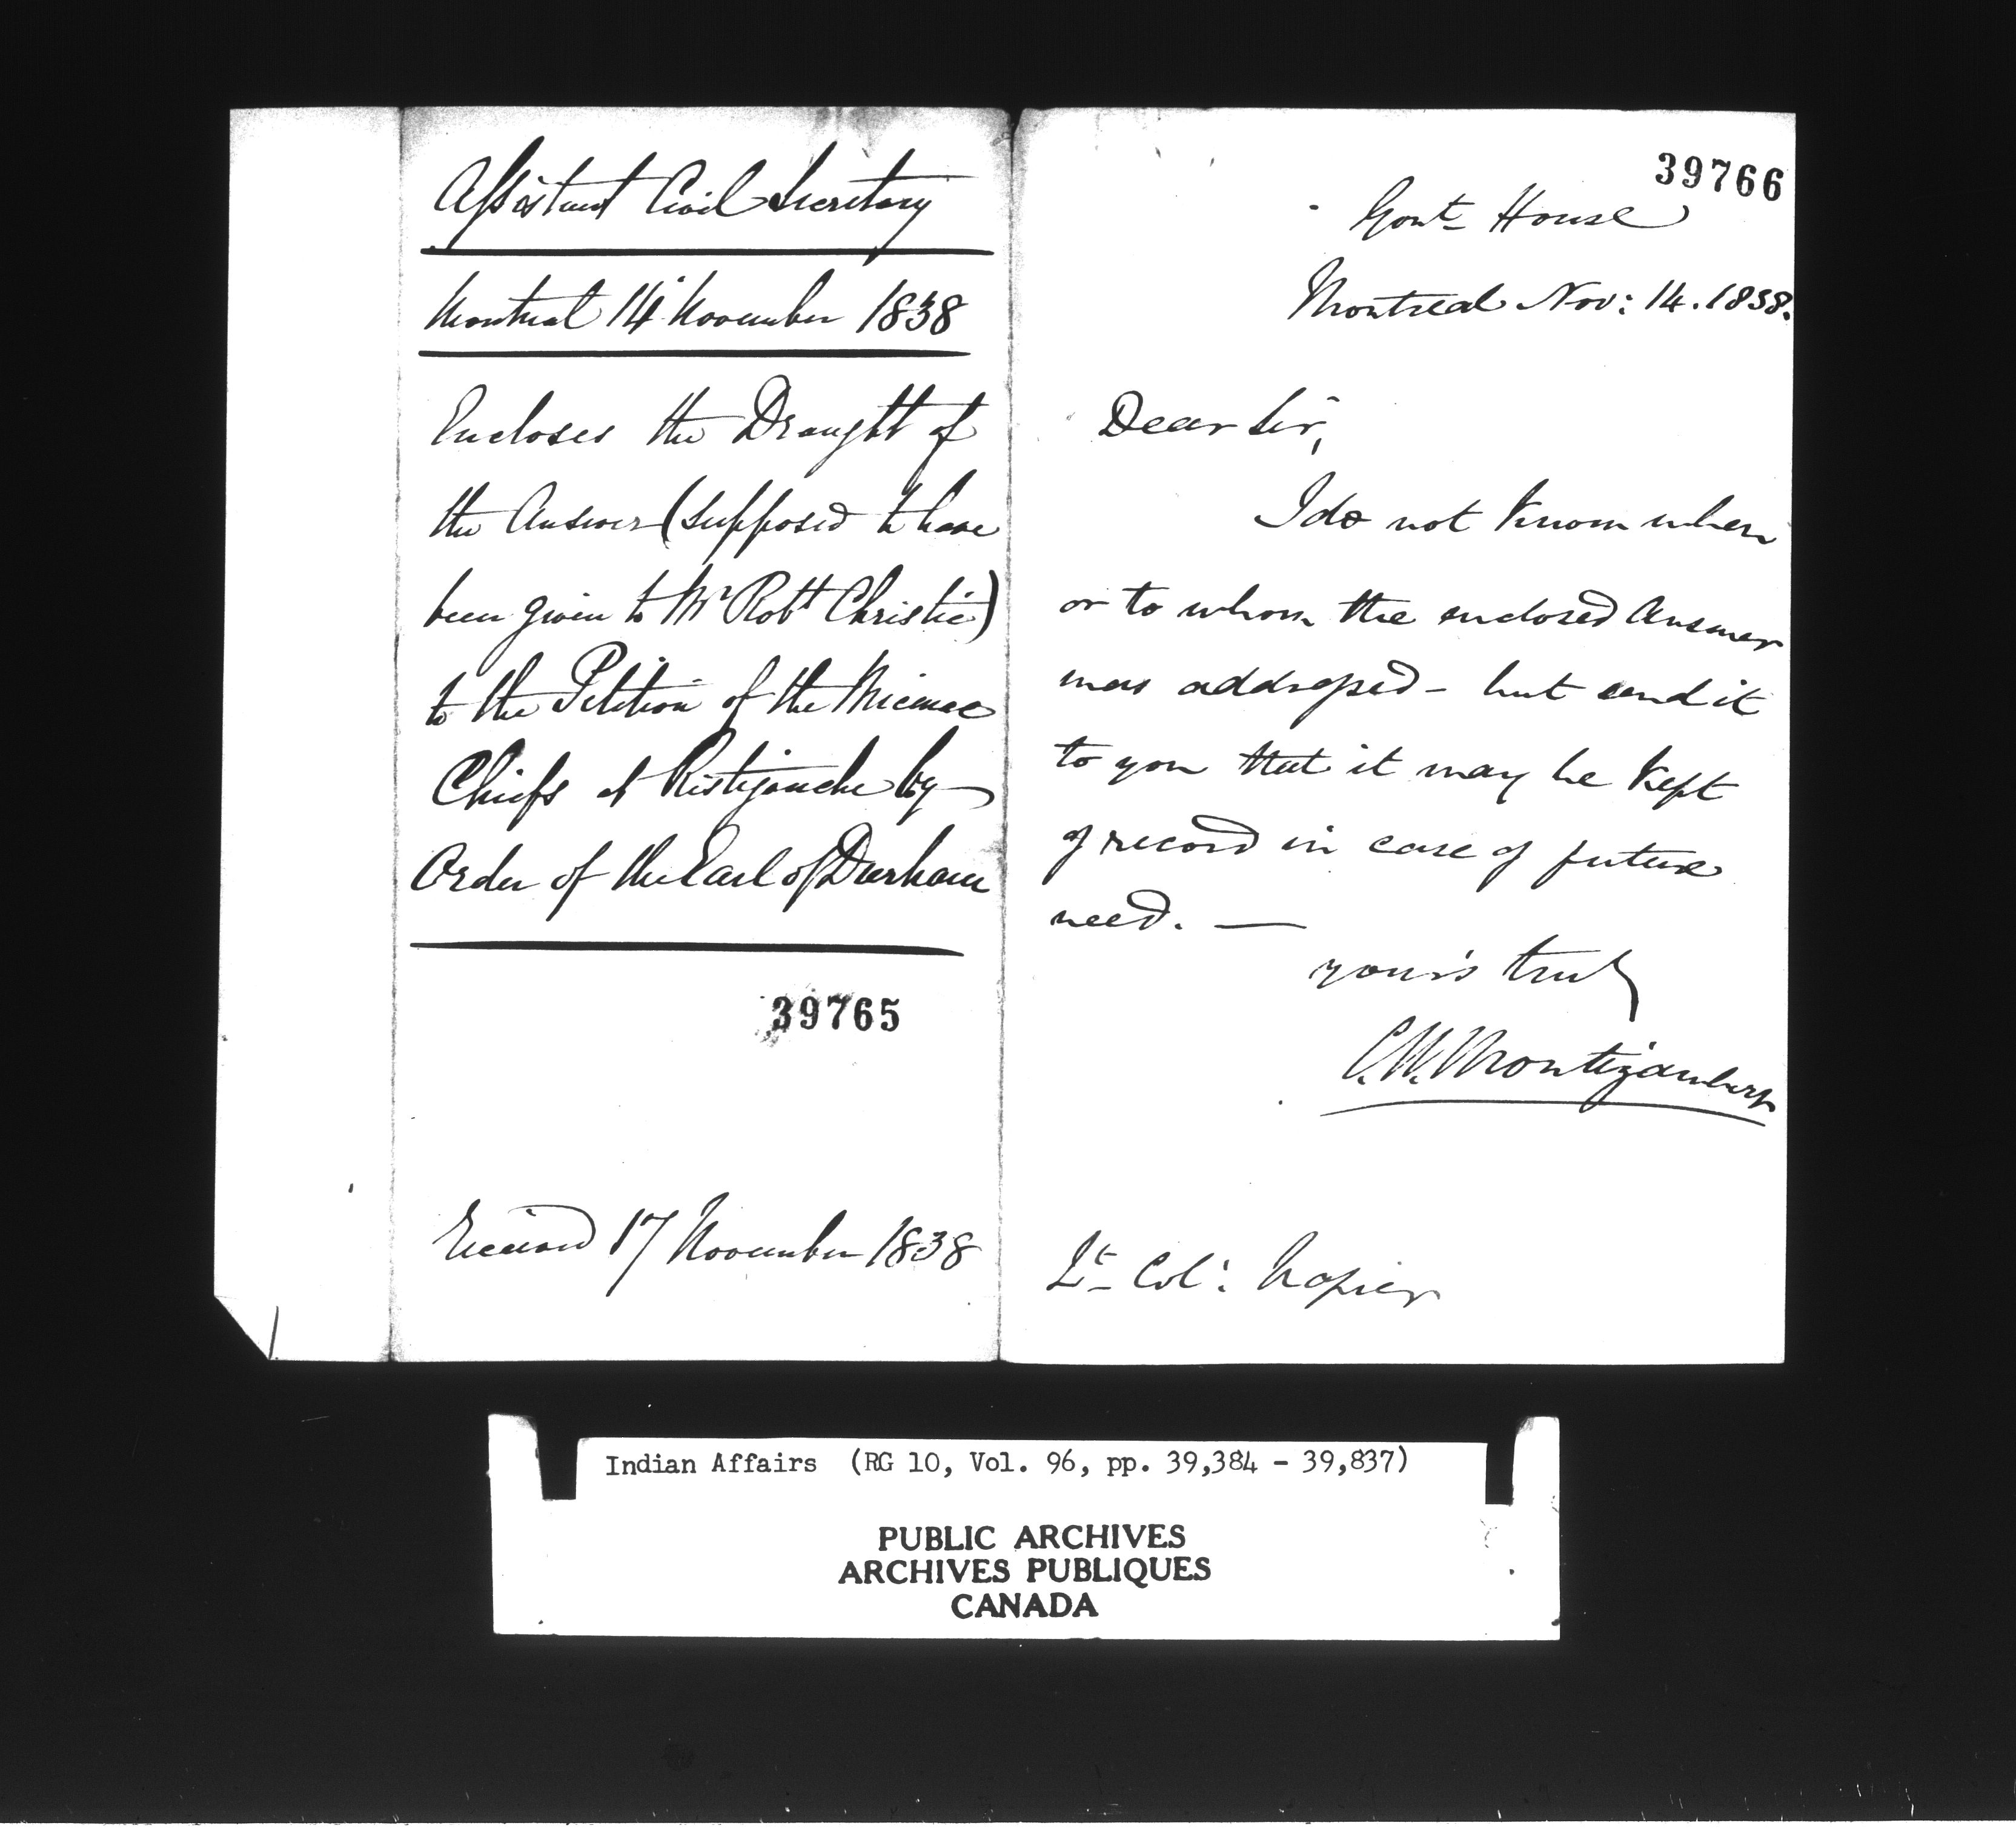 Assistant Civil Secretary
Montreal 14 November 1838
Encloses the Draught of
the Answer (supposed to have
been given to Mr Robt Christie)
to the Petition of the Micmac
Chiefs at Ristigouche by
Order of the Earl of Durham
39765
Received 17 November 1838
39766
Govt House
Montreal Nov: 14. 1838.
Dear Sir,
I do not know when
or to whom the enclosed Answer
was addressed - but send it
to you that it may be kept
of record in case of future
need. —
yours truly
C. W. Montizambert
Lt Col: Napier
Indian Affairs (RG 10, Vol. 96, pp. 39,384 - 39,837)
PUBLIC ARCHIVES
ARCHIVES PUBLIQUES
CANADA